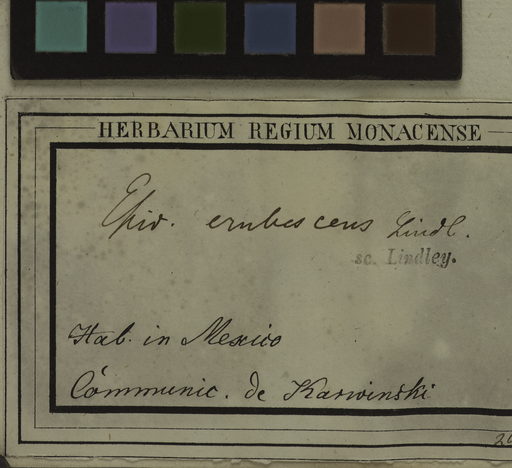 HERBARIUM REGIUM MONACENSE
Epid. erubescens Lindl.
sc. Lindley.
Hab. in Mexico
Communic. de Karwinski